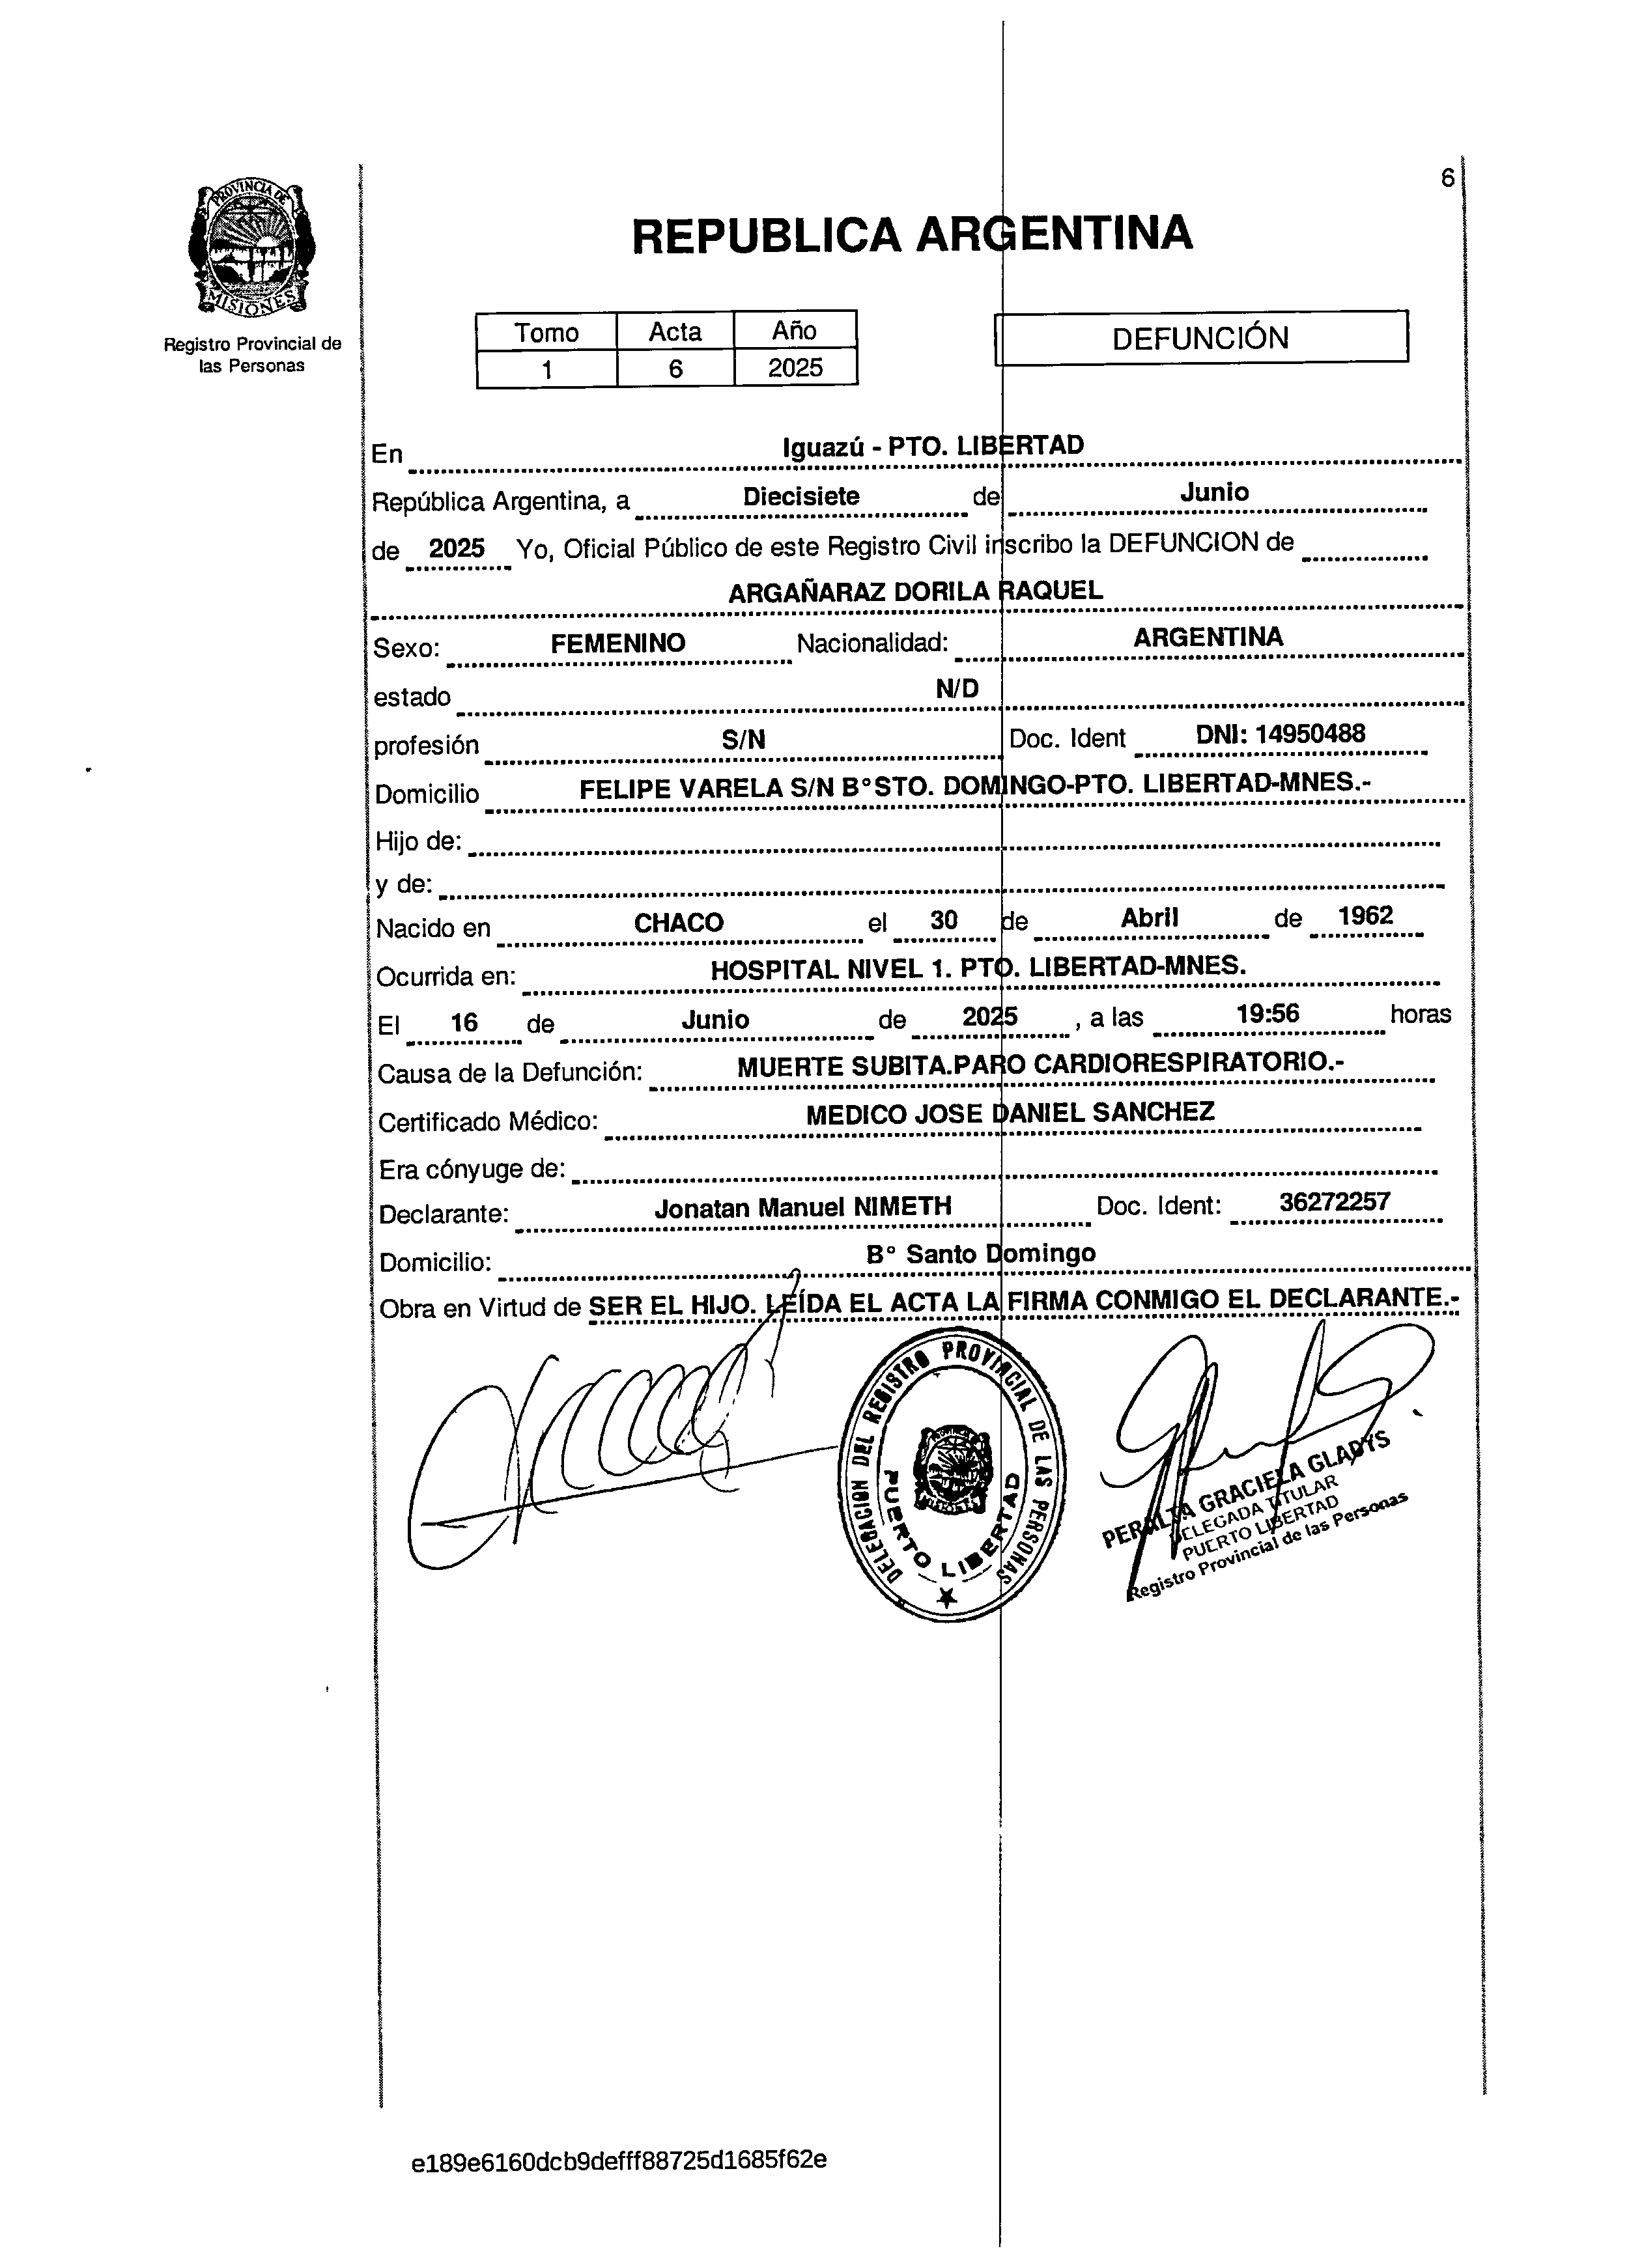 6
PROVINCIA DE
MISIONES
Registro Provincial de
las Personas
REPUBLICA ARGENTINA
Tomo Acta Año
1 6 2025
DEFUNCIÓN
En Iguazú - PTO. LIBERTAD
República Argentina, a Diecisiete de Junio
de 2025 Yo, Oficial Público de este Registro Civil inscribo la DEFUNCION de
ARGAÑARAZ DORILA RAQUEL
Sexo: FEMENINO Nacionalidad: ARGENTINA
estado N/D
profesión S/N Doc. Ident DNI: 14950488
Domicilio FELIPE VARELA S/N B°STO. DOMINGO-PTO. LIBERTAD-MNES.-
Hijo de:
y de:
Nacido en CHACO el 30 de Abril de 1962
Ocurrida en: HOSPITAL NIVEL 1. PTO. LIBERTAD-MNES.
El 16 de Junio de 2025 , a las 19:56 horas
Causa de la Defunción: MUERTE SUBITA.PARO CARDIORESPIRATORIO.-
Certificado Médico: MEDICO JOSE DANIEL SANCHEZ
Era cónyuge de:
Declarante: Jonatan Manuel NIMETH Doc. Ident: 36272257
Domicilio: B° Santo Domingo
Obra en Virtud de SER EL HIJO. LEÍDA EL ACTA LA FIRMA CONMIGO EL DECLARANTE.-
DELEGACION DEL REGISTRO PROVINCIAL DE LAS PERSONAS
PUERTO LIBERTAD
PERALTA GRACIELA GLADYS
DELEGADA TITULAR
PUERTO LIBERTAD
Registro Provincial de las Personas
e189e6160dcb9defff88725d1685f62e